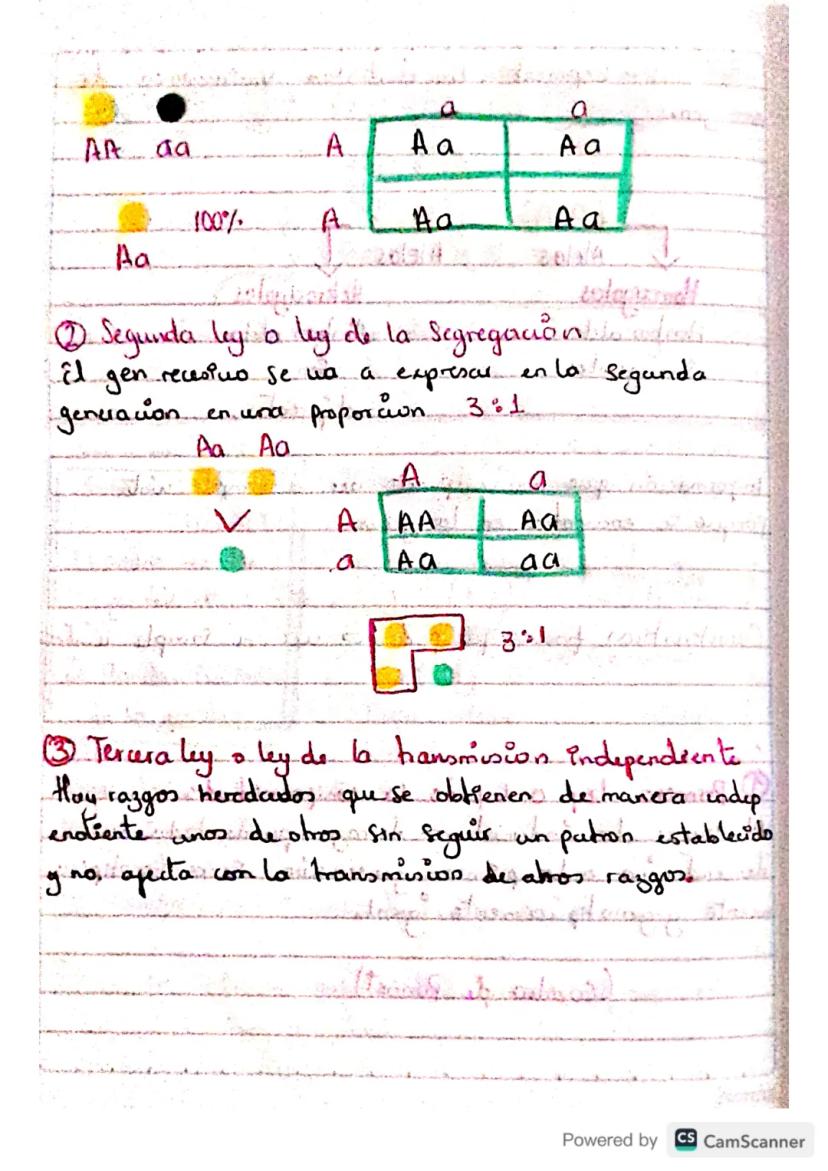 a a
AA aa A Aa Aa
100% A Aa Aa
Aa
② Segunda ley o ley de la Segregación
El gen recesivo se va a expresar en la Segunda
generación en una proporción 3:1
Aa Aa
A a
A AA Aa
a Aa aa
3:1
③ Tercera ley o ley de la transmisión independiente
Hay razgos heredados que se obtienen de manera indep
endiente unos de otros sin seguir un patron establecido
y no afecta con la transmisión de otros razgos.
Powered by CS CamScanner